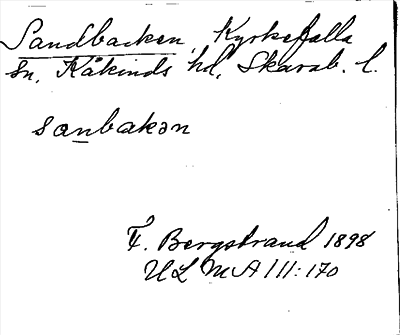 Sandbacken, Kyrkefalla
sn, Kåkinds hd, Skarab. l.
sanbakən
F. Bergstrand 1898
ULMA 111:170